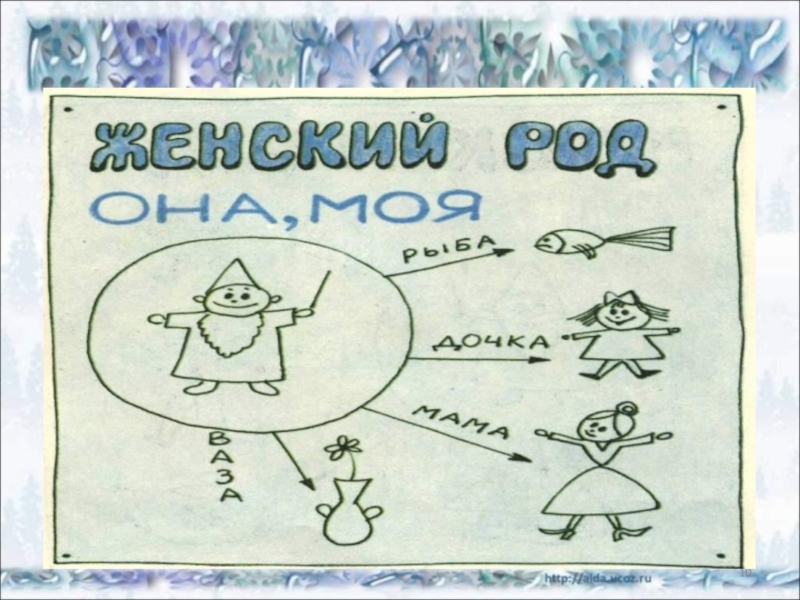 ЖЕНСКИЙ РОД
ОНА, МОЯ
РЫБА
ДОЧКА
МАМА
ВАЗА
http://aida.ucoz.ru